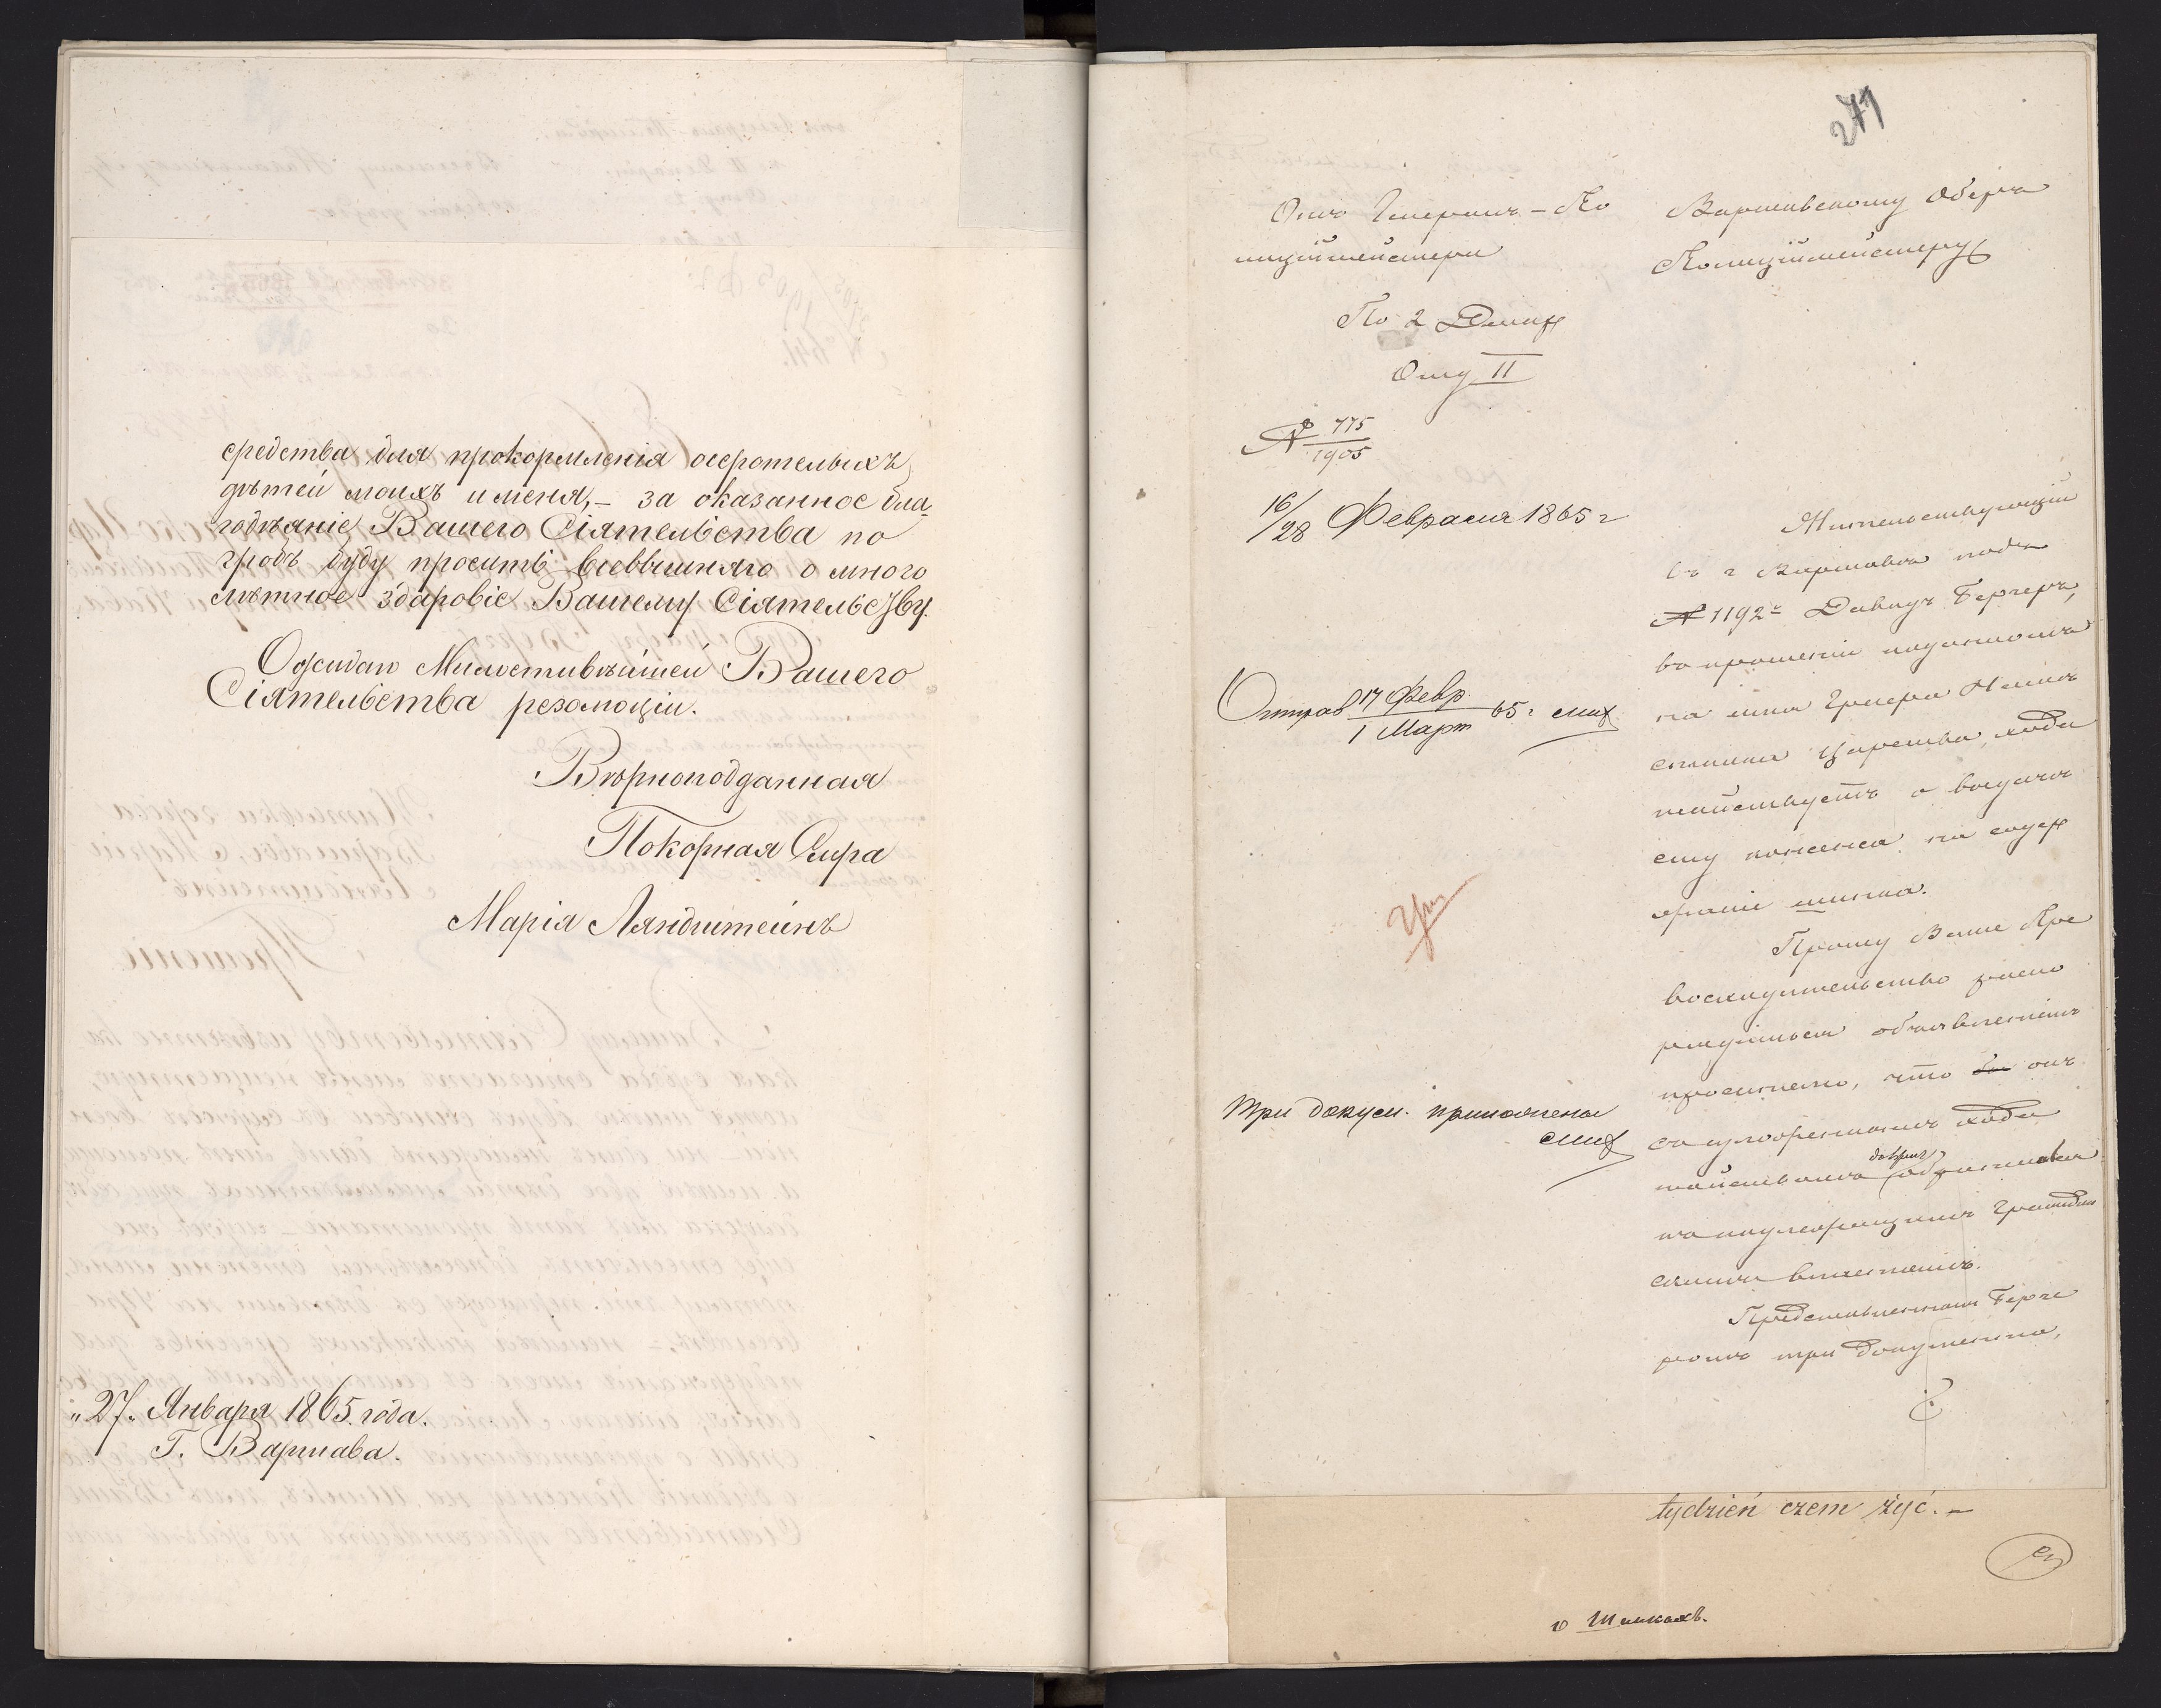 средства для прокормленія осиротелыхъ
дѣтей моихъ и меня, – за оказанное бла-
годѣяніе Вашего Сіятельства по
гробъ буду просить всевышняго о много
лѣтное здаровіе Вашему Сіятельству.
Ожидаю Милостивѣйшей Вашего
Сіятельства резолюціи.
Вѣрноподданная
Покорная Слуга
Марія Ляндштейнъ
"27" Января 1865. года.
Г. Варшава.
271
Отъ Генералъ-По
лиціймейстера
По 2 Деняр
Отд II
№ 775
1905
16/28 Февраля 1865 г
Отправ 17 Февр. 65 г.
1 Март
Три докум. приложены
Варшавскому Оберъ
Полиціймейстеру
Жительствующій
въ г Варшавѣ подъ
№ 1192 Давидъ Бергеръ,
въ прошеніи поданномъ
на имя Графа Намѣ
стника Царства, хода
тайствуетъ о выдачѣ
ему консенса на содер
жаніе шинка.
Прошу Ваше Пре
восходительство распо
рядиться объявленіемъ
просителю, что онъ
съ изложеннымъ хода
тайствомъ долженъ обратиться
къ подлежащимъ Граждан
скимъ властямъ.
Представленные Берге
ромъ три документа,
tydzień czem żyć. –
о Шинкахъ.